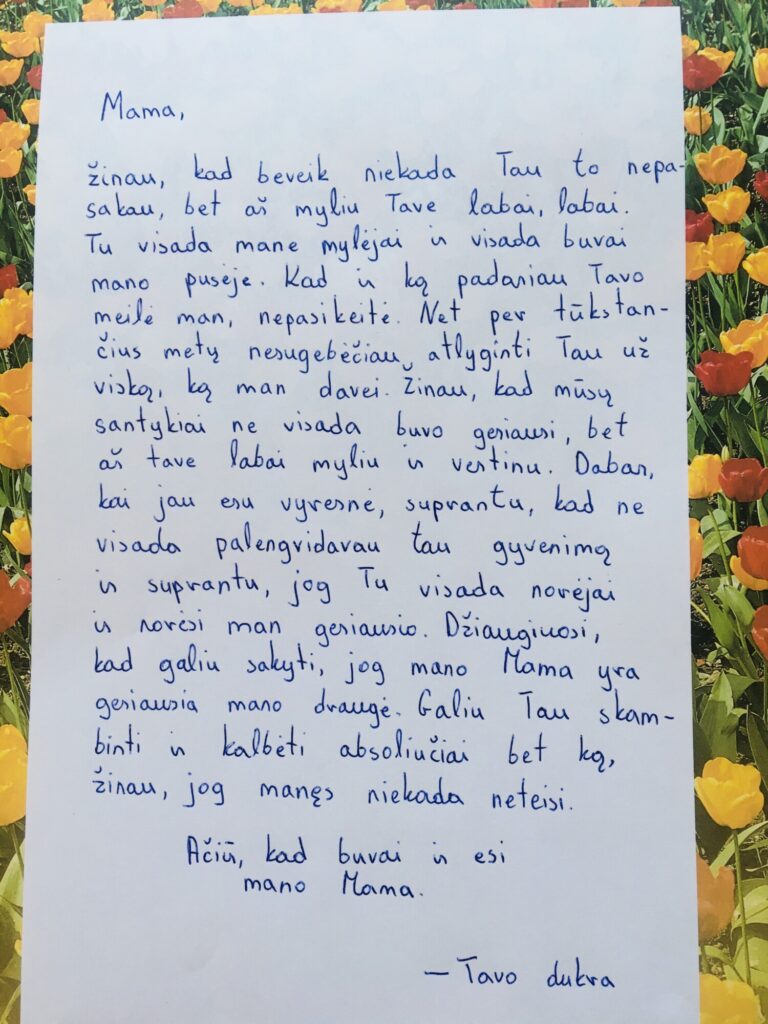 Mama,
žinau, kad beveik niekada Tau to nepa-
sakau, bet aš myliu Tave labai, labai.
Tu visada mane mylėjai ir visada buvai
mano pusėje. Kad ir ką padariau Tavo
meilė man, nepasikeitė. Net per tūkstan-
čius metų nesugebėčiau atlyginti Tau už
viską, ką man davei. Žinau, kad mūsų
santykiai ne visada buvo geriausi, bet
aš tave labai myliu ir vertinu. Dabar,
kai jau esu vyresnė, suprantu, kad ne
visada palengvidavau tau gyvenimą
ir suprantu, jog Tu visada norėjai
ir norėsi man geriausio. Džiaugiuosi,
kad galiu sakyti, jog mano Mama yra
geriausia mano draugė. Galiu Tau skam-
binti ir kalbėti absoliučiai bet ką,
žinau, jog manęs niekada neteisi.
Ačiū, kad buvai ir esi
mano Mama.
— Tavo dukra